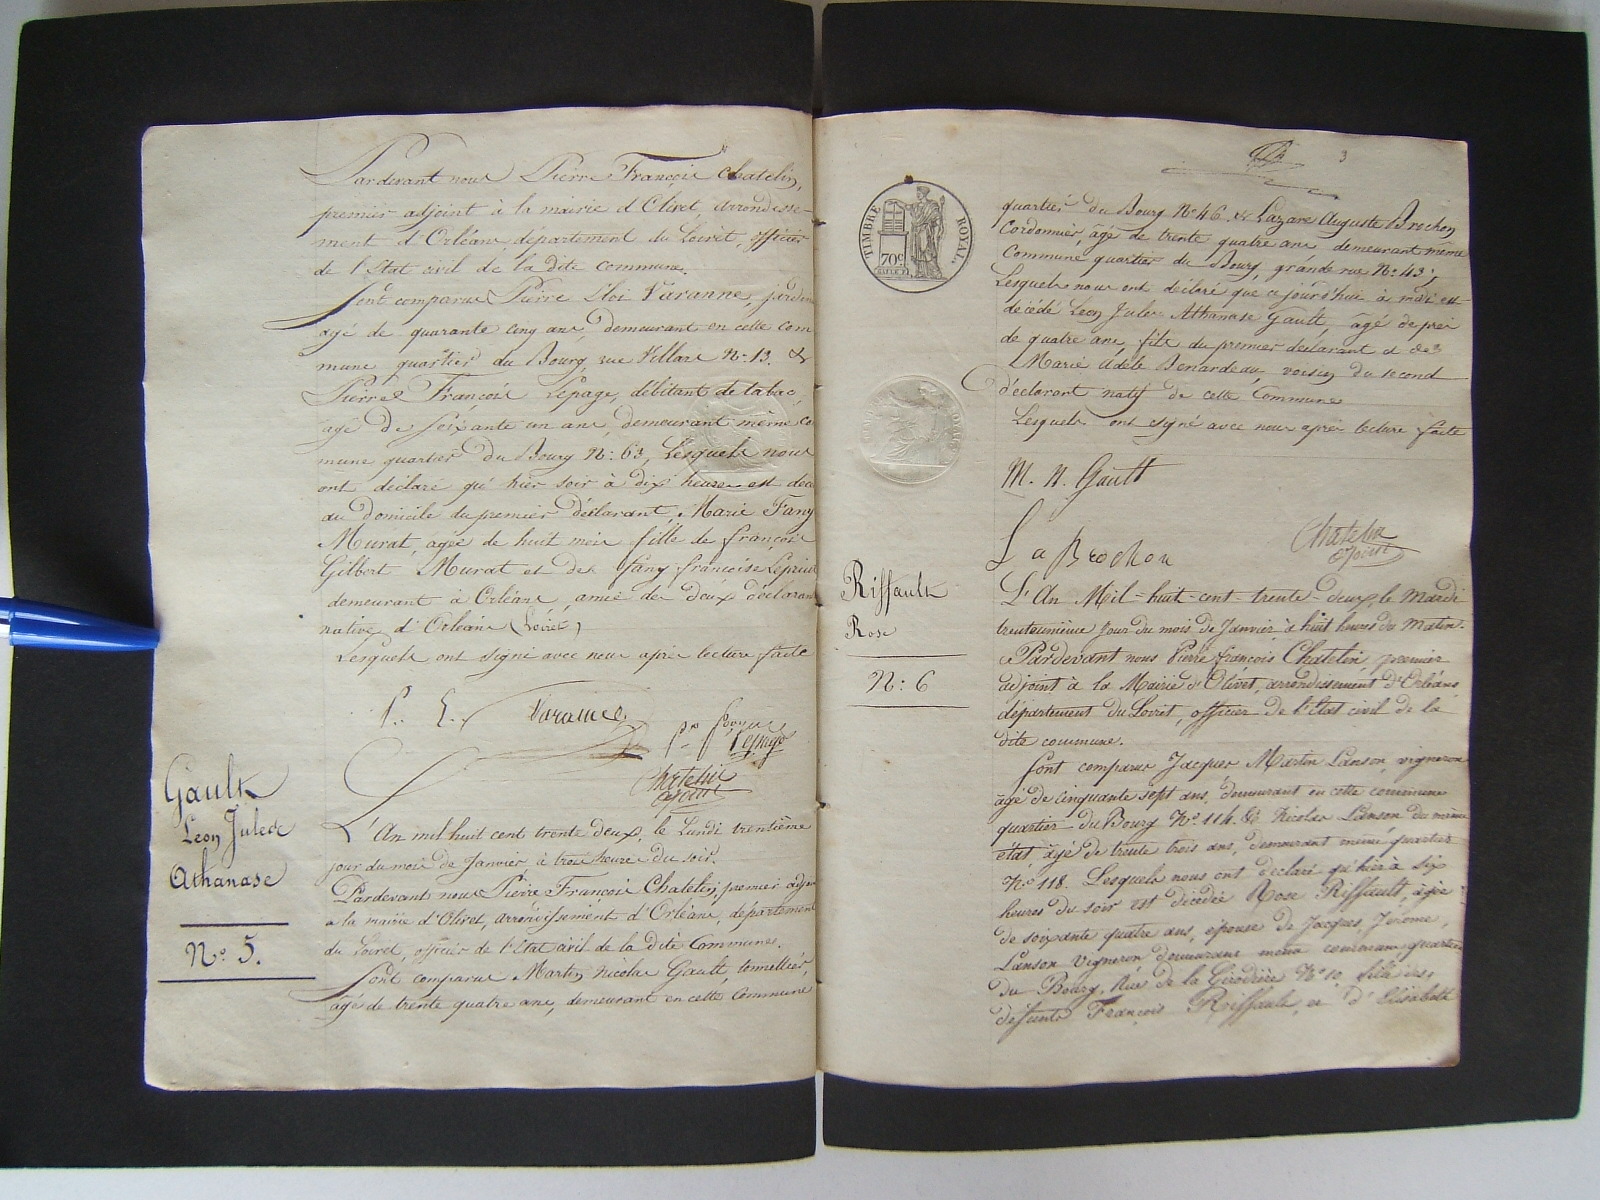 Pardevant nous Pierre François Chatelin,
premier adjoint à la mairie d'Olivet, arrondisse-
ment d'Orléans, département du Loiret, officier
de l'Etat civil de la dite commune.
Sont comparus Pierre Eloi Varanne, jardin
agé de quarante cinq ans, demeurant en cette com
mune quartier du Bourg, rue Villars N°: 13. &
Pierre François Lepage, débitant de tabac,
agé de Soixante un ans, demeurant même co
mune quartier du Bourg N°: 63, Lesquels nous
ont déclaré qu'hier soir à dix heures est décé
au domicile du premier déclarant, Marie Fany
Murat, agée de huit mois fille de françois
Gilbert Murat et de fany françoise
demeurant à Orléans, amie des deux déclarans
native d'Orléans (Loiret)
Lesquels ont signé avec nous après lecture faite
P. E. Varanne
Lepage
Chatelin
adjoint
Gault
Leon Jules
Athanase
N°. 5.
L'An mil huit cent trente deux, le Lundi trentième
jour du mois de Janvier à trois heures du soir.
Pardevant nous Pierre François Chatelin, premier adjoi
a la mairie d'Olivet, arrondissement d'Orléans, département
du Loiret, officier de l'Etat civil de la dite Commune.
Sont comparus Martin Nicolas Gault, tonnellier,
agé de trente quatre ans, demeurant en cette Commune
3
TIMBRE ROYAL.
70c.
quartier du Bourg N°: 46. & Lazare Auguste Brochon
Cordonnier, âgé de trente quatre ans demeurant même
Commune quartier du Bourg, grande rue N°: 43;
Lesquels nous ont déclaré que cejourd'hui à midi est
décédé Leon Jules Athanase Gault, âgé de près
de quatre ans, fils du premier déclarant et de
Marie Adèle Benardeau, voisin du second
déclarant natif de cette Commune
Lesquels ont signé avec nous après lecture faite
M. N. Gault
L a Brochon
Chatelin
adjoint
Riffault
Rose
N°: 6
L'An Mil-huit-cent-trente-deux, le Mardi
trenteunième jour du mois de Janvier à huit heures du Matin.
Pardevant nous Pierre François Chatelin, premier
adjoint à la Mairie d'Olivet, arrondissement d'Orléans,
département du Loiret, officier de l'Etat civil de la
dite commune.
Sont comparus Jacques Martin Lanson, vigneron
âgé de cinquante sept ans, demeurant en cette commune
quartier du Bourg N°. 114. & Nicolas Lanson du même
état, âgé de trente trois ans, demeurant même quartier
N°. 118. Lesquels nous ont déclaré qu'hier à six
heures du soir est décédée Rose Riffault, âgée
de soixante quatre ans, épouse de Jacques, Jérôme,
Lanson vigneron demeurans même commune quartier
du Bourg, Rue de la Girodière N°. 10. fille des
défunts François Riffault, et d'Elisabeth